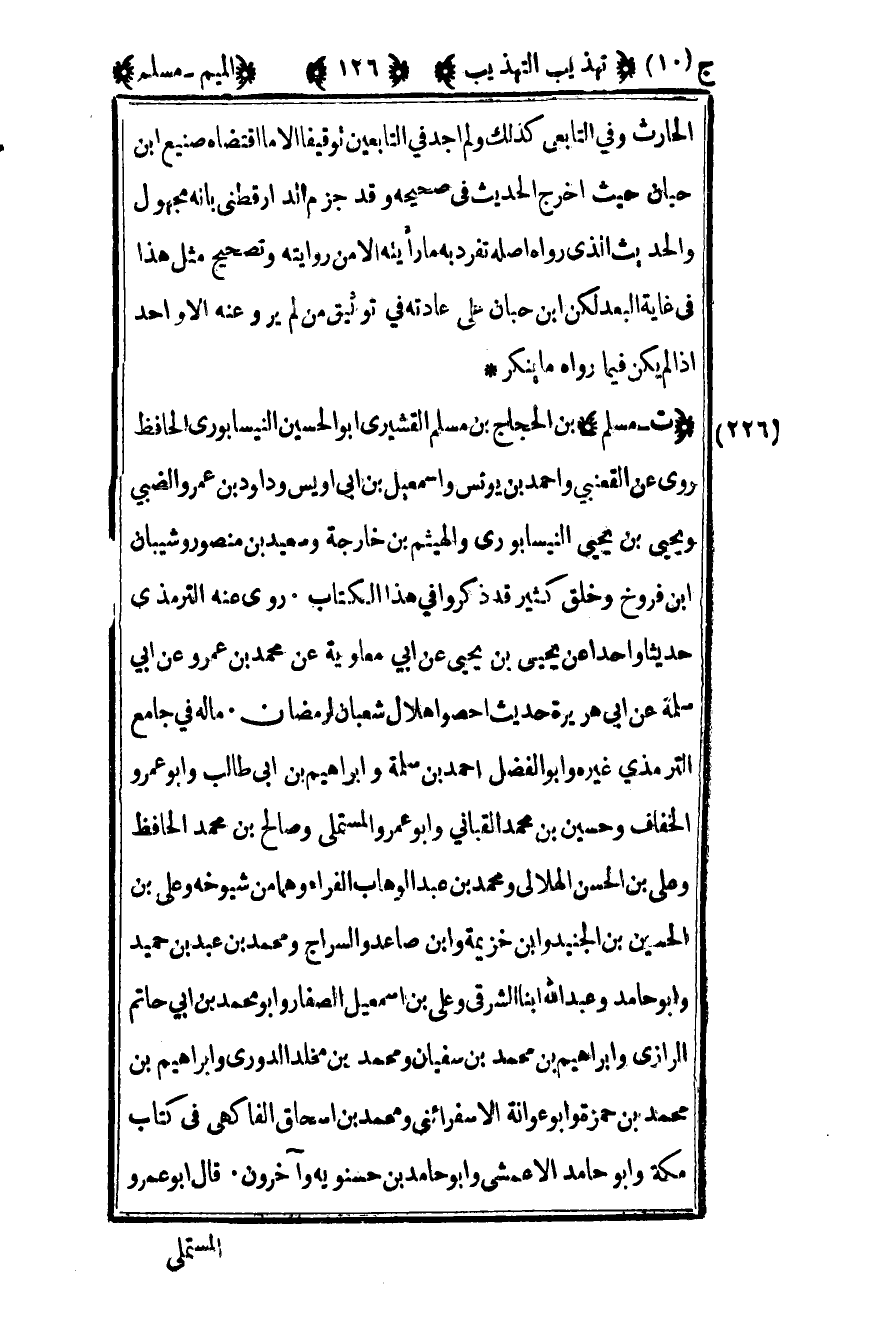 ج (١٠) ﴿ تهذيب التهذيب ﴾ ﴿ ١٢٦ ﴾ ﴿الميم - مسلم﴾
الحارث وفي التابعى كذلك ولم اجد في التابعين توقيفا الا ما اقتضاه صنيع ابن
حبان حيث اخرج الحديث فى صحيحه و قد جزم الدارقطنى بانه مجهول
والحديث الذى رواه اصله تفرد به ما رأيته الا من روايته وتصحيح مثل هذا
فى غاية البعد لكن ابن حبان على عادته في توثيق من لم يرو عنه الا واحد
اذا لم يكن فيما رواه ما ينكر *
﴿ت - مسلم﴾ بن الحجاج بن مسلم القشيرى ابو الحسين النيسابورى الحافظ (٢٢٦)
روى عن القعنبي واحمد بن يونس واسمعيل بن ابى اويس وداود بن عمرو الضبي
ويحيى بن يحيى النيسابورى والهيثم بن خارجة وسعيد بن منصور وشيبان
ابن فروخ وخلق كثير قد ذكروا في هذا الكتاب ٠ روى عنه الترمذى
حديثا واحدا عن يحيى بن يحيى عن ابي معاوية عن محمد بن عمرو عن ابي
سلمة عن ابى هريرة حديث احصوا هلال شعبان لرمضان ٠ ماله في جامع
الترمذي غيره وابو الفضل احمد بن سلمة و ابراهيم بن ابى طالب وابو عمرو
الخفاف وحسين بن محمد القباني وابو عمرو المستملى وصالح بن محمد الحافظ
وعلى بن الحسن الهلالى ومحمد بن عبد الوهاب الفراء وهما من شيوخه وعلى بن
الحسين بن الجنيد وابن خزيمة وابن صاعد والسراج ومحمد بن عبد بن حميد
وابو حامد وعبد الله ابنا الشرقى وعلى بن اسمعيل الصفار وابو محمد بن ابي حاتم
الرازى وابراهيم بن محمد بن سفيان ومحمد بن مخلد الدورى وابراهيم بن
محمد بن حمزة وابو عوانة الاسفرائنى ومحمد بن اسحاق الفاكهى فى كتاب
مكة وابو حامد الاعمشى وابو حامد بن حسنويه وآخرون ٠ قال ابو عمرو
المستملى